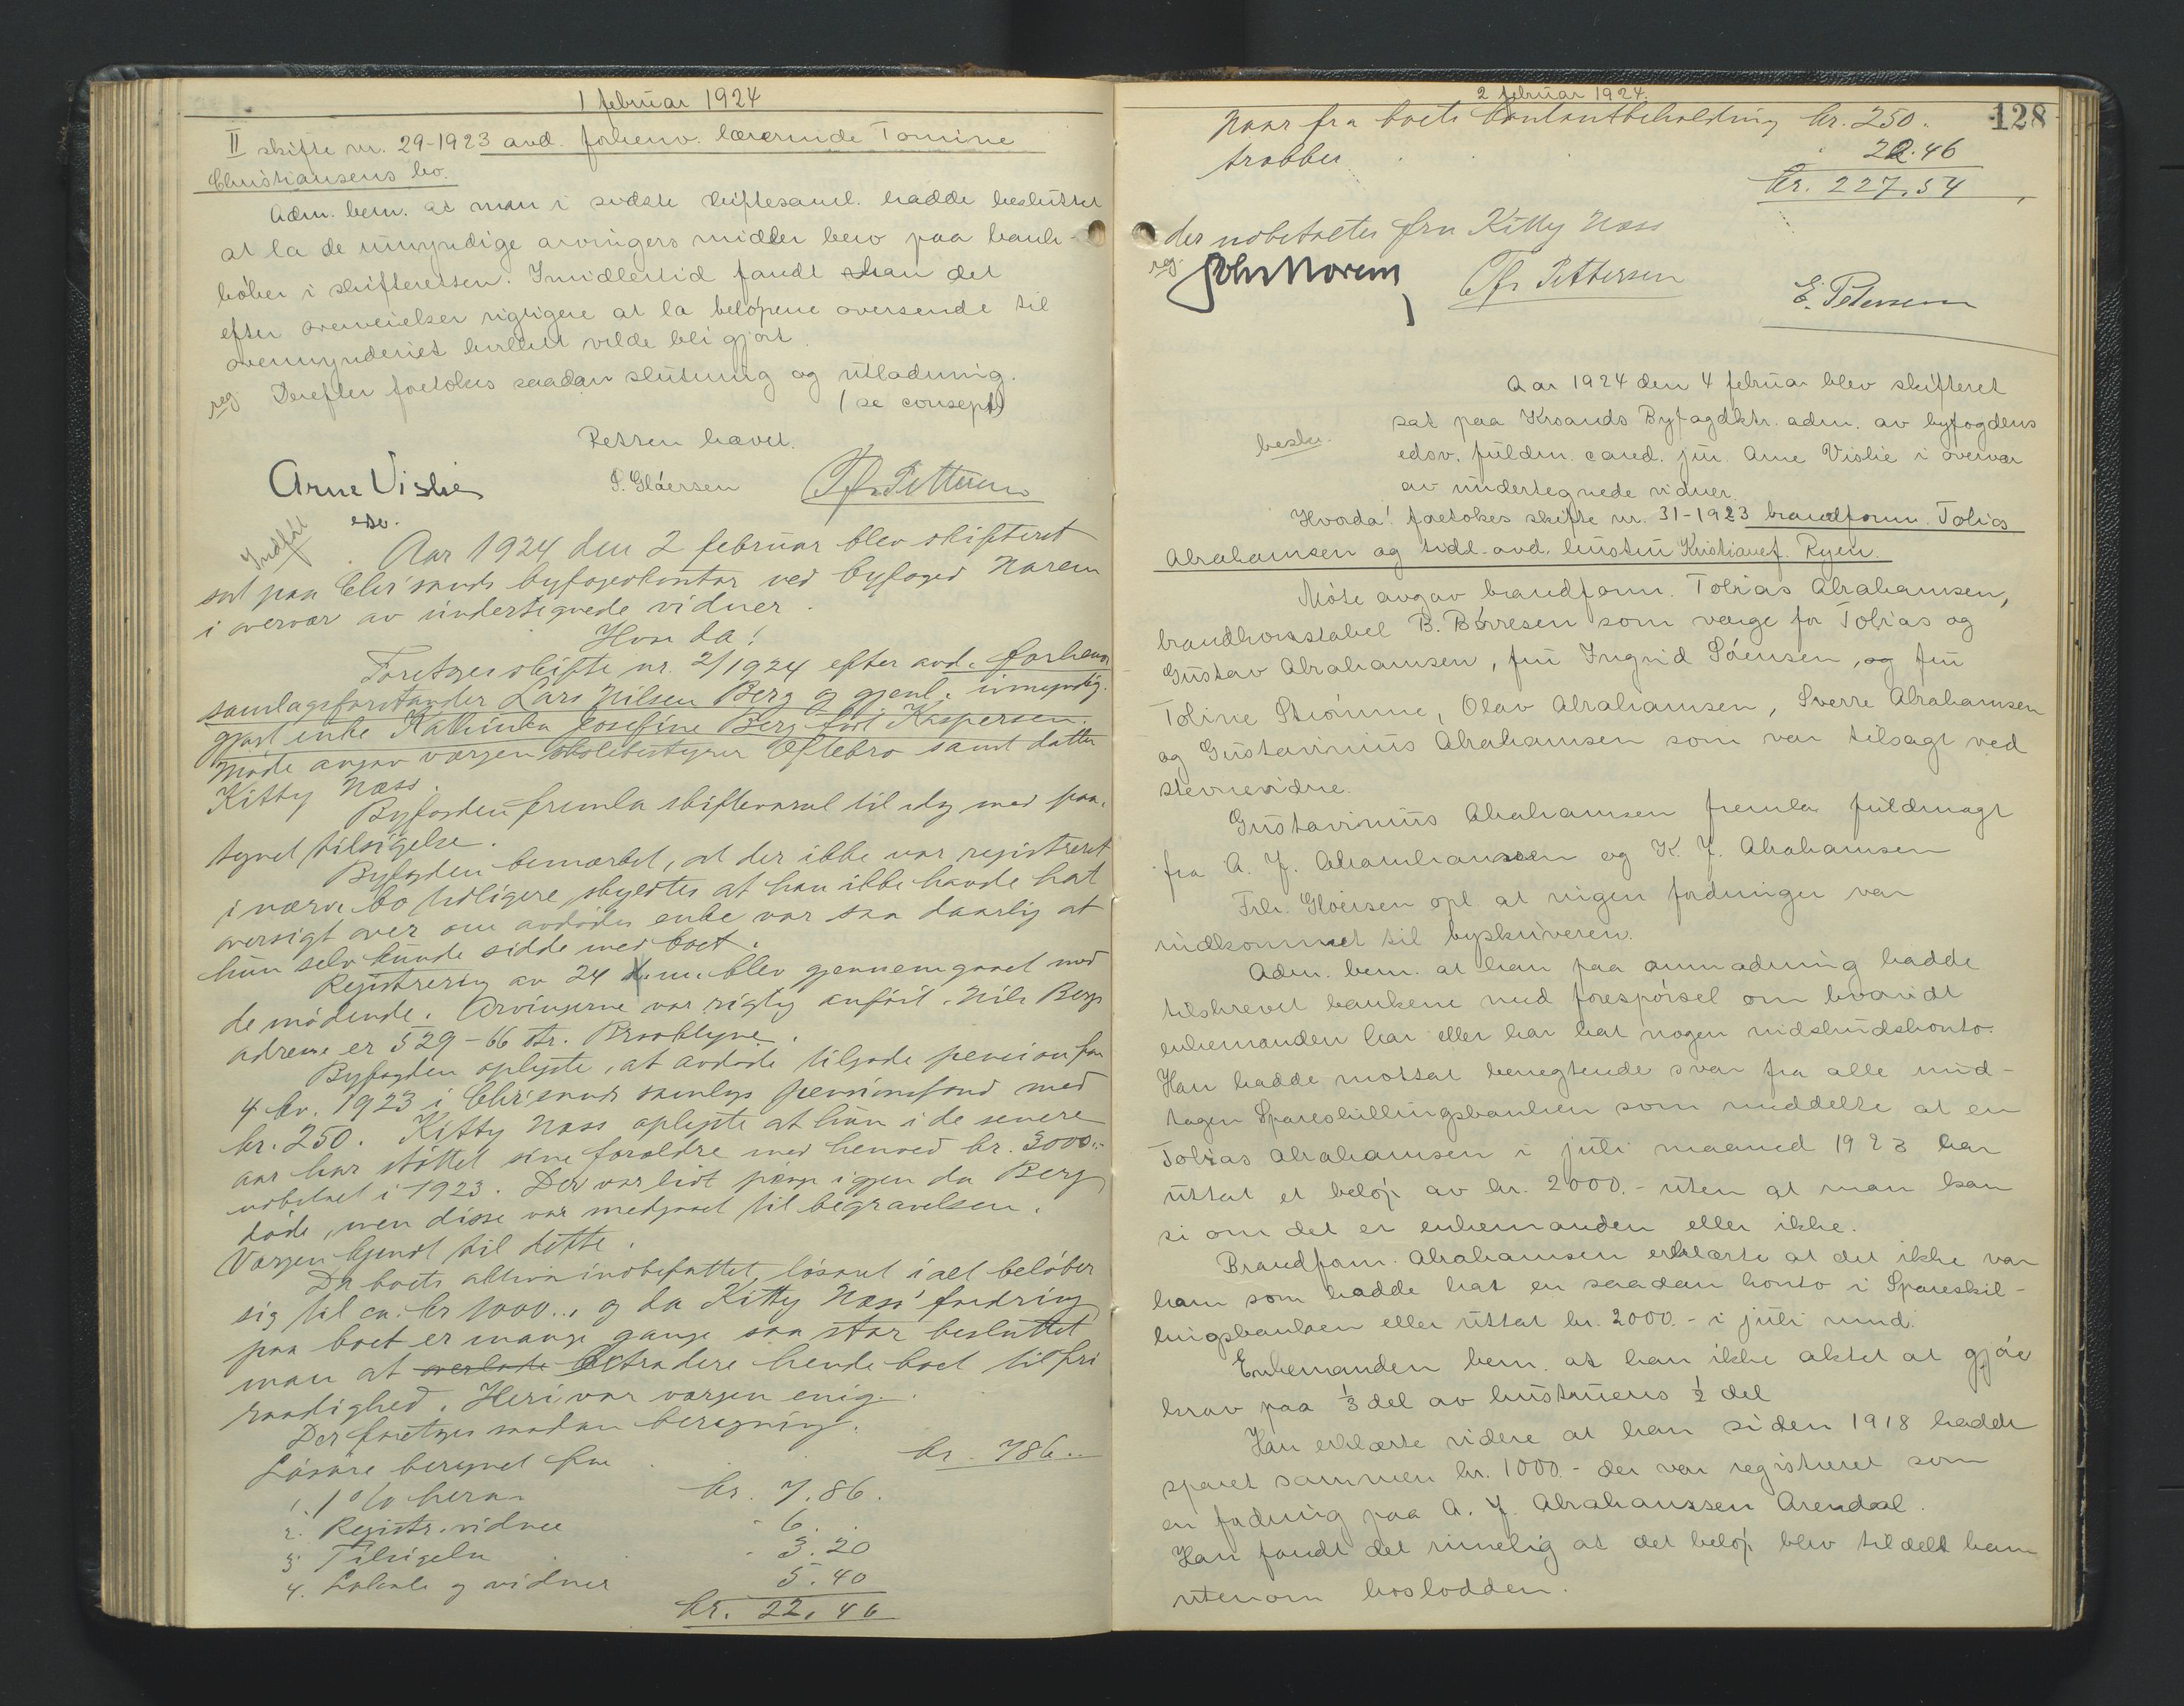 1 februar 1924
II skifte nr. 29-1923 avd. forhenv. lærerinde Tomine
Christiansens bo.
Adm. bem. at man i sidste skiftesaml. hadde besluttet
at la de umyndige arvingers midler bero paa bank-
bøker i skifteretten. Imidlertid fandt han det
efter overveielser rigtigere at la beløpene oversende til
overmynderiet hvilket vilde bli gjort.
reg Derefter foretokes saadan slutning og utlodning.
(se consept)
Retten hævet.
Arne Vislie S. Gløersen Chr. Pettersen
edsv.
Indført
Aar 1924 den 2 februar blev skifteret
sat paa Chr'sands byfogedkontor ved byfoged Norem
i overvær av undertegnede vidner.
Hvor da!
Foretoges skifte nr. 2/1924 efter avd. forhenv
samlagsforstander Lars Nilsen Berg og gjenl. umyndig-
gjort enke Kathinka Josefine Berg født Kaspersen.
Møde avgav vergen skolebestyrer Oftebro samt datter
Kitty Næss.
Byfogden fremla skiftevarsel til idag med paa-
tegnet tilsigelse.
Byfogden bemærket, at der ikke var registreret
i nærv. bo tidligere skyldtes at han ikke havde hat
oversigt over om avdødes enke var saa daarlig at
hun selv kunde sidde med boet.
Registrering av 24 f.m. blev gjennemgaaet med
de mødende. Arvingerne var rigtig anført. Nils Bergs
adresse er 529-66 str. Brooklyne.
Byfogden oplyste, at avdøde tilgode pension for
4 kv. 1923 i Chr'sands samlags pensionsfond med
kr. 250. Kitty Næss oplyste at hun i de senere
aar har støttet sine forældre med henved kr. 3000.-
utbetalt i 1923. Der var lidt penge igjen da Berg
døde, men disse var medgaaet til begravelsen.
Vergen kjendt til dette.
Da boets aktiva indbefattet løsøret i alt beløber
sig til ca. kr 1000.., og da Kitty Næss' fordring
paa boet er mange gange saa stor besluttet
man at overlate Extradere hende boet til fri
raadighed. Heri var vergen enig.
Der foretoges saadan beregning.
Løsøre beregnet for kr. 786..
1. 1% herav kr. 7.86.
2. Registr. vidner - 6.
3. Tilsigelse - 3.20
4. Lokale og vidner 5.40
kr. 22.46
2 februar 1924.
128
Naar fra boets kontantbeholdning kr. 250.
trækkes 22.46
kr. 227.54
der utbetales fru Kitty Næss
reg. John Norem Chr. Pettersen E. Petersen
Aar 1924 den 4 februar blev skifteret
sat paa Krsands Byfogdktr. adm. av byfogdens
beskr. edsv. fuldm. cand. jur. Arne Vislie i overvær
av undertegnede vidner.
Hvorda! foretokes skifte nr. 31-1923 brandform. Tobias
Abrahamsen og tidl. avd. hustru Kristiane f. Ryen.
Møte avgav brandform. Tobias Abrahamsen,
brandkonstabel B. Børresen som verge for Tobias og
Gustav Abrahamsen, fru Ingrid Sørensen, og fru
Toline Strømme, Olav Abrahamsen, Sverre Abrahamsen
og Gustavinius Abrahamsen som var tilsagt ved
stevnevidne.
Gustavinius Abrahamsen fremla fuldmagt
fra A. J. Abrahamsen og K. J. Abrahamsen
Frk. Gløersen opl. at ingen fordringer var
indkommet til byskriveren.
Adm. bem. at han paa anmodning hadde
tilskrevet bankene med forespørsel om hvorvidt
enkemanden har eller har hat nogen indskudskonto.
Han hadde mottat benegtende svar fra alle und-
tagen Spareskillingsbanken som meddelte at en
Tobias Abrahamsen i juli maaned 1923 har
uttat et beløp av kr. 2000.- uten at man kan
si om det er enkemanden eller ikke.
Brandform. Abrahamsen erklærte at det ikke var
ham som hadde hat en saadan konto i Spareskil-
lingsbanken eller uttat kr. 2000.- i juli mnd.
Enkemanden bem. at han ikke aktet at gjøre
krav paa 1/3 del av hustruens 1/2 del
Han erklærte videre at han siden 1918 hadde
sparet sammen kr. 1000.- der var registreret som
en fordring paa A. J. Abrahamssen Arendal.
Han fandt det rimelig at det beløp blev tildelt ham
utenom boslodden.